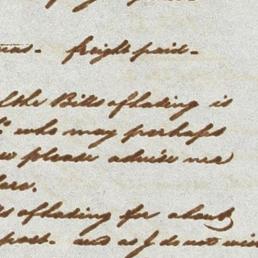 freight paid -
of the Bills of lading is
who may perhaps
please advise me
s of lading for about
and as I do not